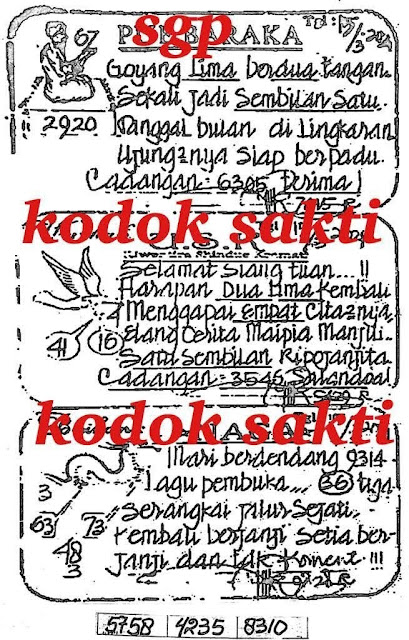 sgp
67
BARAKA
Goyang Lima berdua tangan
Sekali jadi Sembilan Satu.
2920
Tanggal bulan di Lingkaran
Ujung2nya siap berpadu.
Cadangan: 6305 Terima!
kodok sakti
Selamat Siang tuan...!!
Harapan Dua Lima Kembali
Menggapai Empat Cita2nya
41
16
Elang Cerita Maipia Manjuli..
Satu Sembilan Ripojanjita
Cadangan: 3545
kodok sakti
Mari berdendang 9314
3
Lagu pembuka... 36 tiga
63
73
Serangkai jalur Sejati.
48
3
Kembali berjanji Setia ber-
janji dan tak Koment !!!
5758 4235 8310